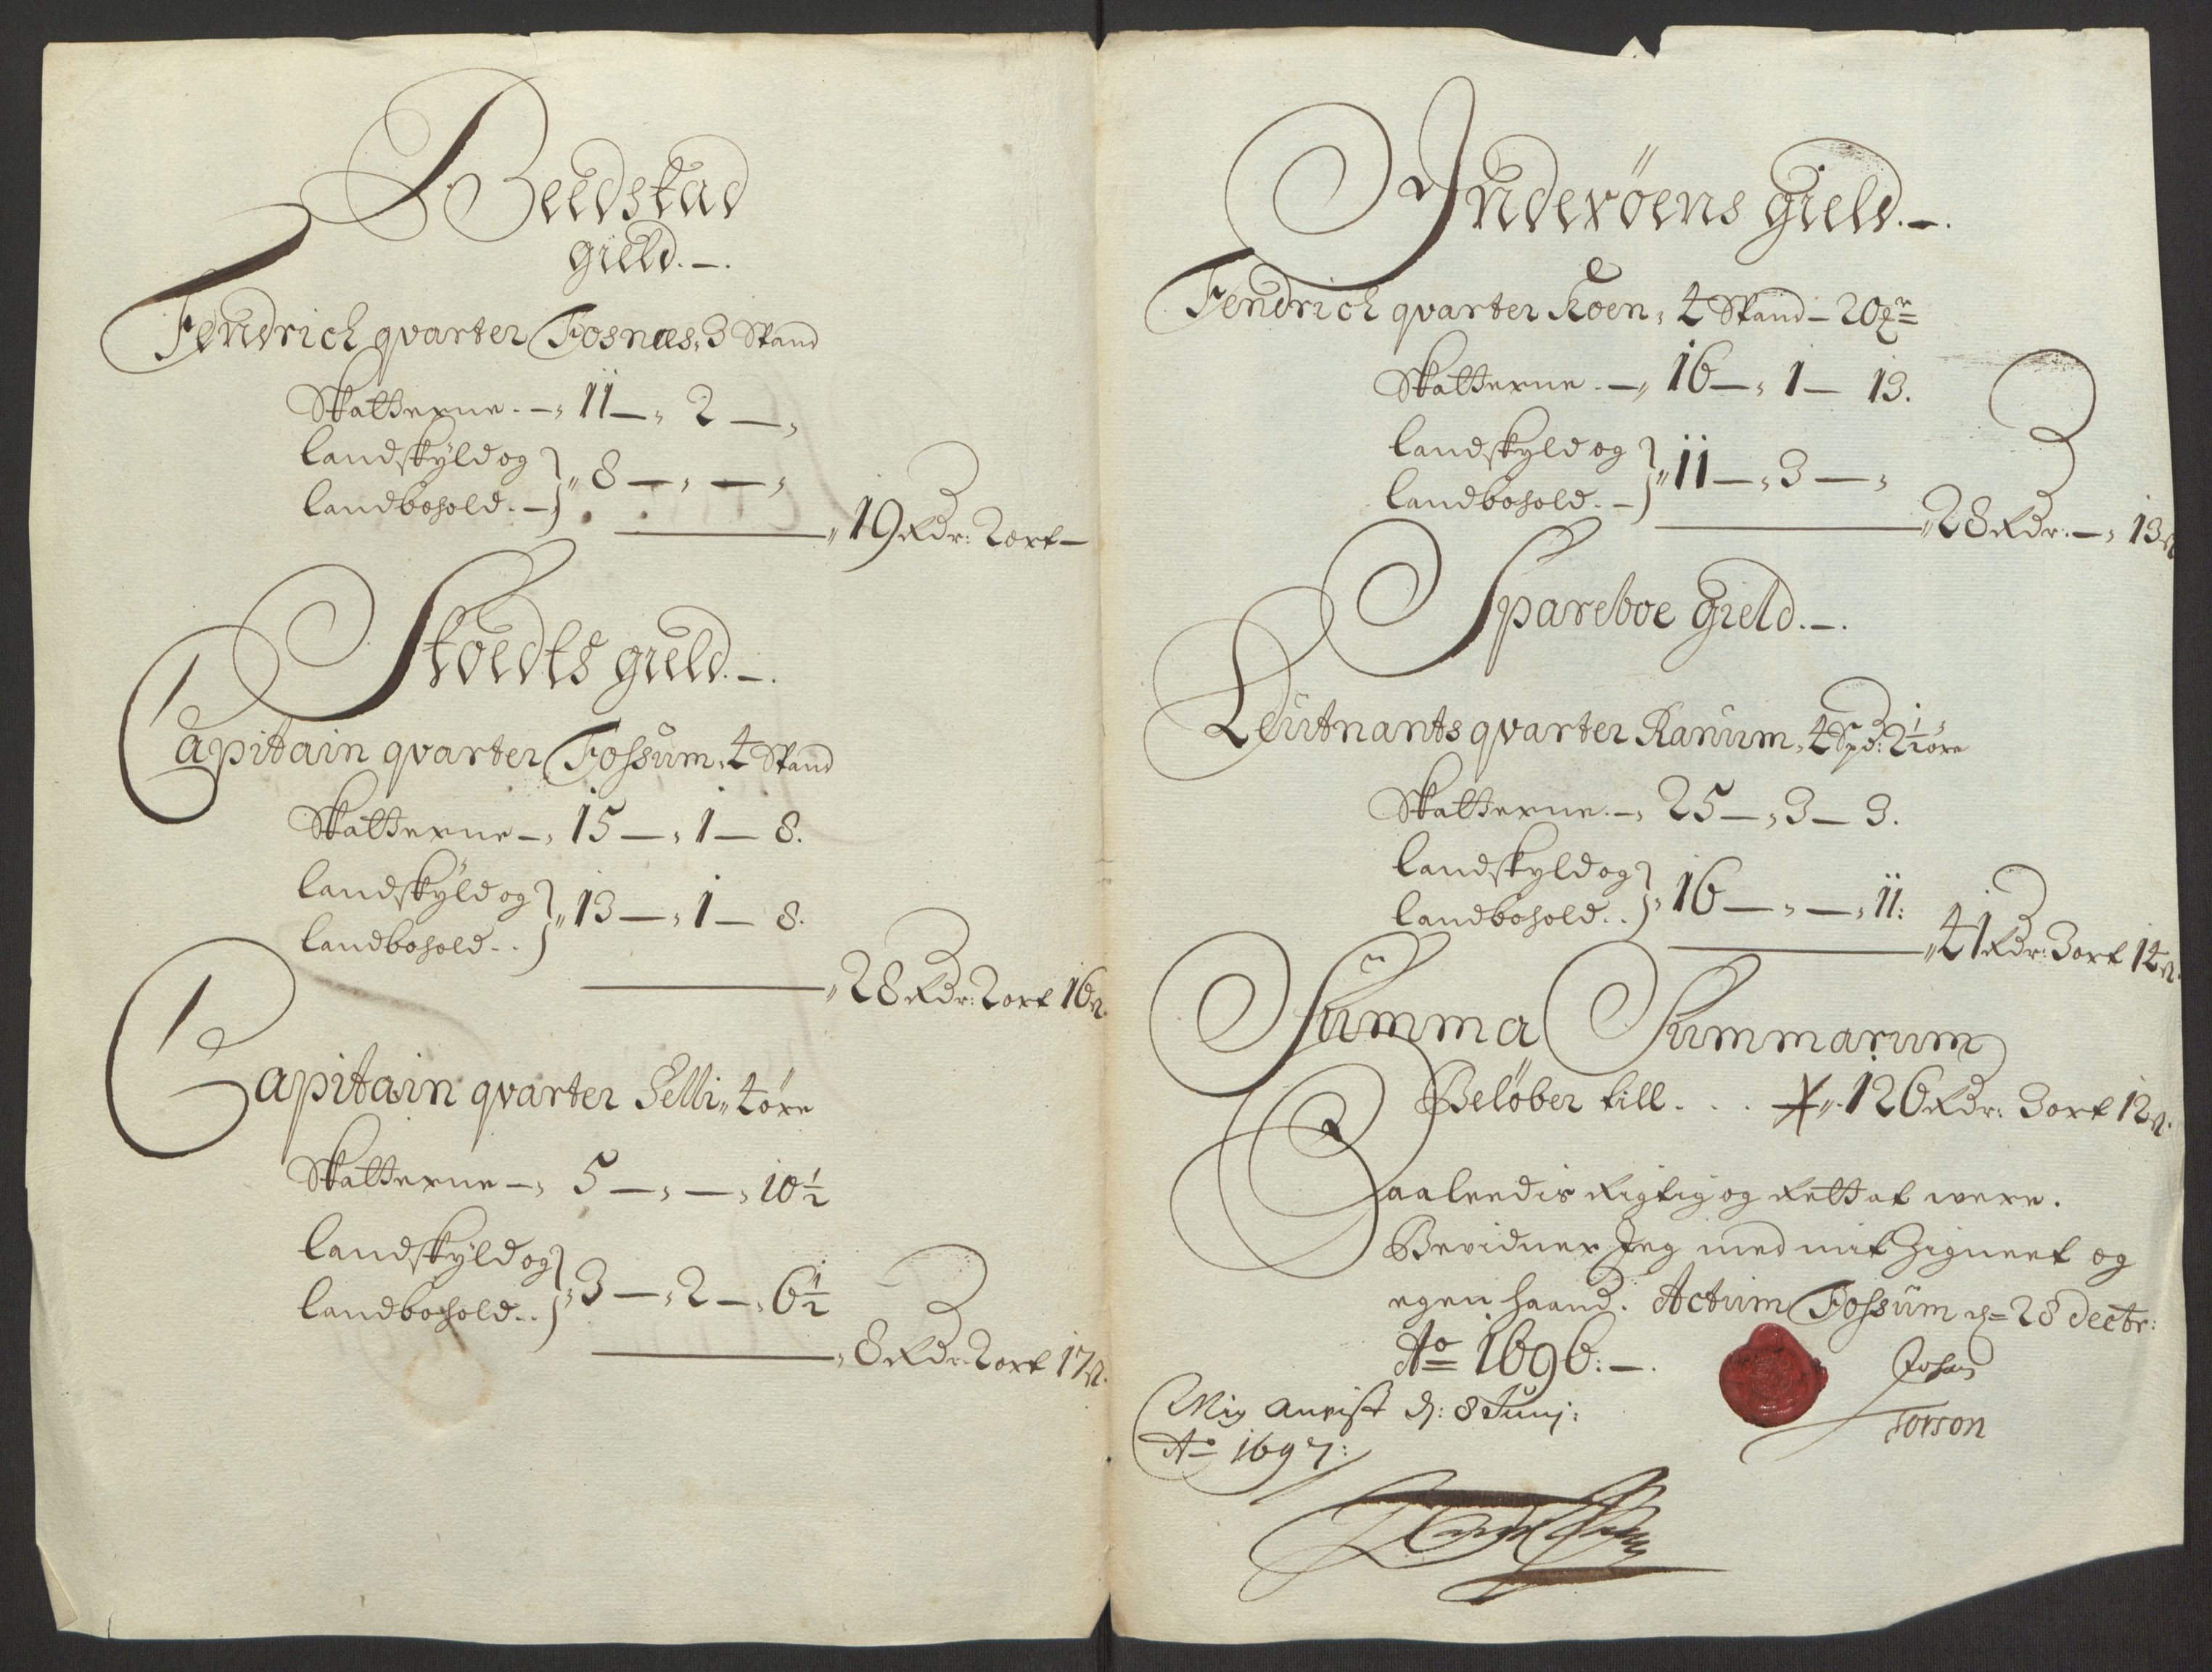 Beedstad
gield. —.
Fendrich qvarter Fosnæs, 3 Spand
Skatterne. — „ 11 — „ 2 — „
Landskÿld og
Landbohold. — } „ 8 — „ — „
„ 19 Rdr: 2 ort —
Stoedts gield. —.
Capitain qvarter Fossum, 4 Spand
Skatterne — „ 15 — „ 1 — 8.
Landskÿld og
Landbohold. . } „ 13 — „ 1 — 8.
„ 28 Rdr: 2 ort 16 s.
Capitain qvarter Selli „ 4 øre
Skatterne — „ 5 — „ — „ 10½
Landskÿld og
Landbohold. . } „ 3 — „ 2 — „ 6½
„ 8 Rdr: 2 ort 17 s.
Inderöens gield. —.
Fendrich qvarter Roen, 4 Spand — 20
Skatterne. — „ 16 — „ 1 — 13.
Landskyld og
Landbohold. — } „ 11 — „ 3 — „
„ 28 Rdr. — „ 13 s
Spareboe gield. —.
Leutnants qvarter Ranum, 4 Spd: 2½ øre
Skatterne. — „ 25 — „ 3 — 3.
Landskyld og
Landbohold. . } „ 16 — „ — „ 11:
„ 41 Rdr: 3 ort 14 s.
Summa Summarum
Beløber till. . . „ 126 Rdr: 3 ort 12 s.
Saaleedis Rigtig og Rett at were.
Bevidner Jeg med mit Zigneet og
egen haand. Actum Fossum d= 28 Decbr:
Ao 1696. —.
Johan
Torson
Mig anvist d: 8 Junj:
Ao 1697: